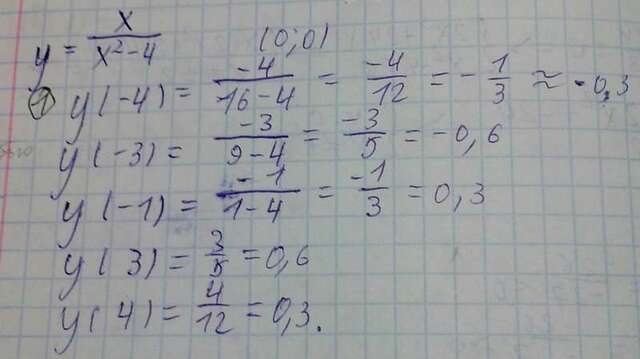 y = x/(x²-4) (0;0)
① y(-4) = -4/(16-4) = -4/12 = -1/3 ≈ -0,3
y(-3) = -3/(9-4) = -3/5 = -0,6
y(-1) = -1/(1-4) = -1/3 = 0,3
y(3) = 3/5 = 0,6
y(4) = 4/12 = 0,3.